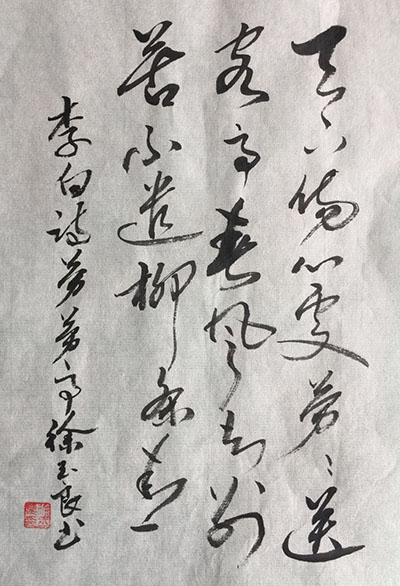 天下傷心處勞々送
客亭春風知別
苦不遣柳條青
李白詩勞勞亭徐玉良書